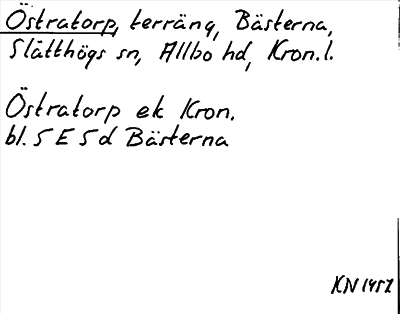 Östratorp, terräng, Bästerna,
Slätthögs sn, Allbo hd, Kron.l.
Östratorp ek Kron.
bl. 5 E 5 d Bästerna
KN 1457